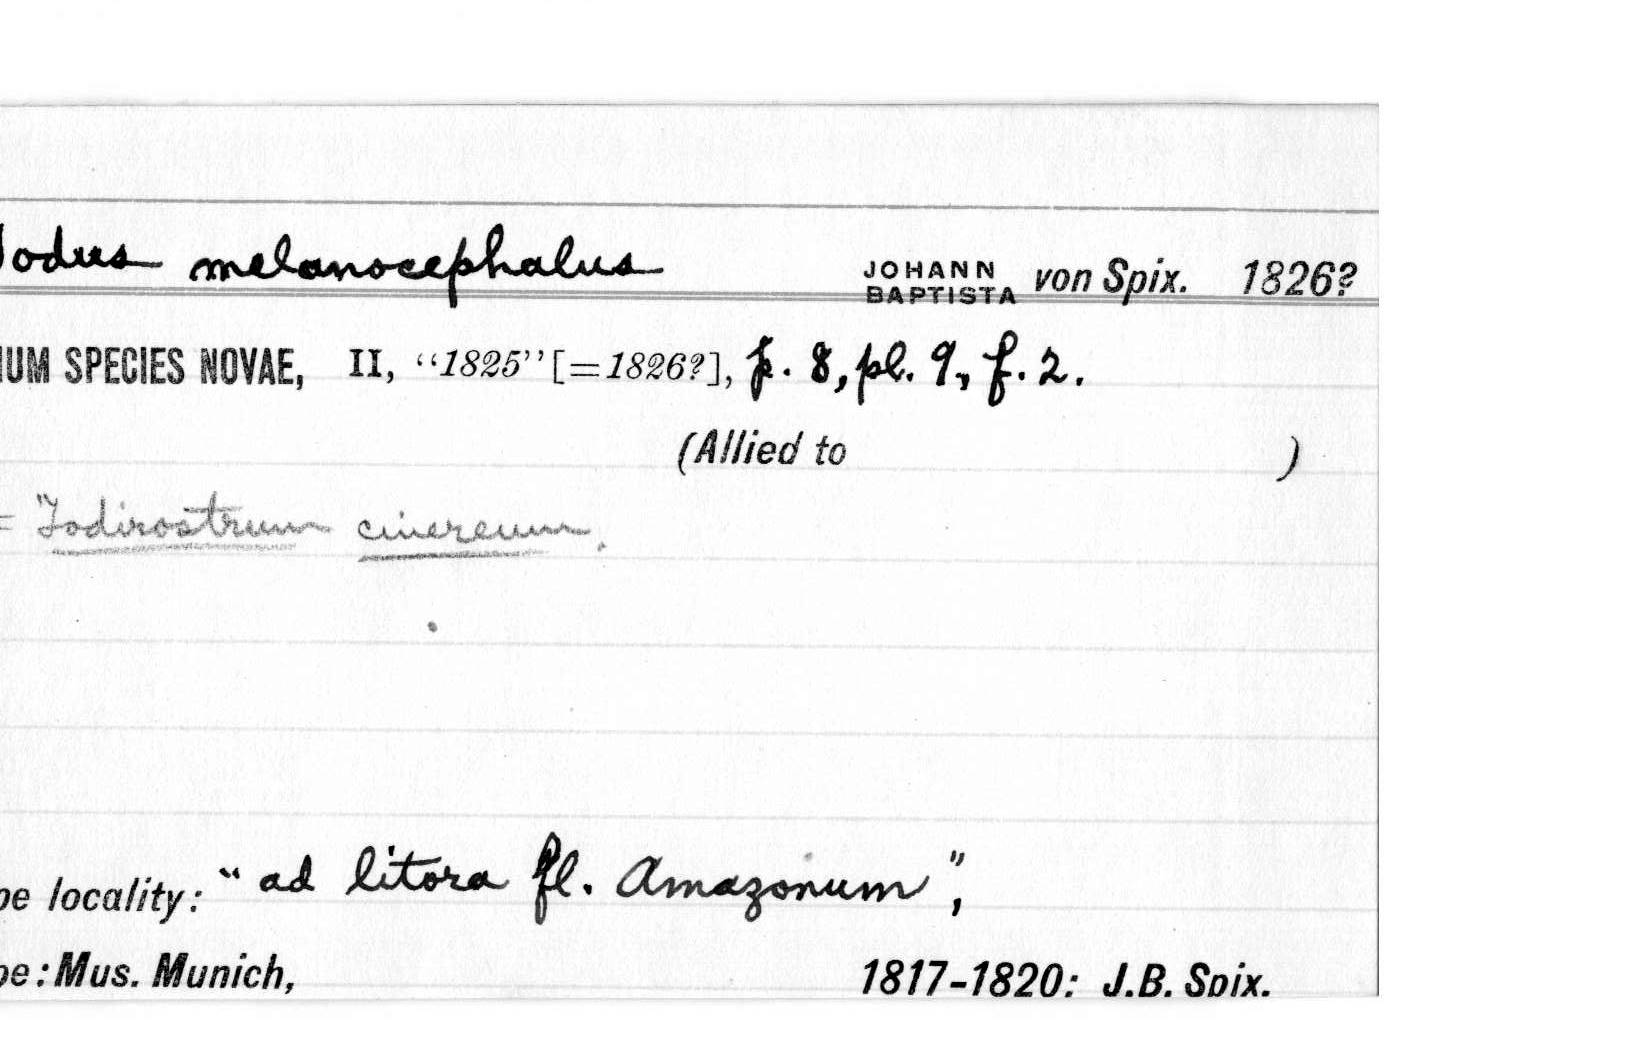 Todus melanocephalus JOHANN BAPTISTA von Spix. 1826?
IUM SPECIES NOVAE, II, “1825” [=1826?], p. 8, pl. 9, f. 2.
(Allied to )
= Todirostrum cinereum.
pe locality: “ad litora fl. Amazonum”,
pe: Mus. Munich, 1817-1820: J.B. Spix.